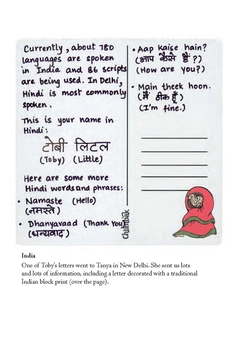 Currently, about 780
languages are spoken
in India and 86 scripts
are being used. In Delhi,
Hindi is most commonly
spoken.
This is your name in
Hindi:
टोबी लिटल
(Toby) (Little)
Here are some more
Hindi words and phrases:
• Namaste (Hello)
(नमस्ते)
• Dhanyavaad (Thank You)
(धन्यवाद)
• Aap kaise hain?
(आप कैसे हैं?)
(How are you?)
• Main theek hoon.
(मैं ठीक हूँ)
(I'm fine.)
chumbak
India
One of Toby's letters went to Tanya in New Delhi. She sent us lots
and lots of information, including a letter decorated with a traditional
Indian block print (over the page).